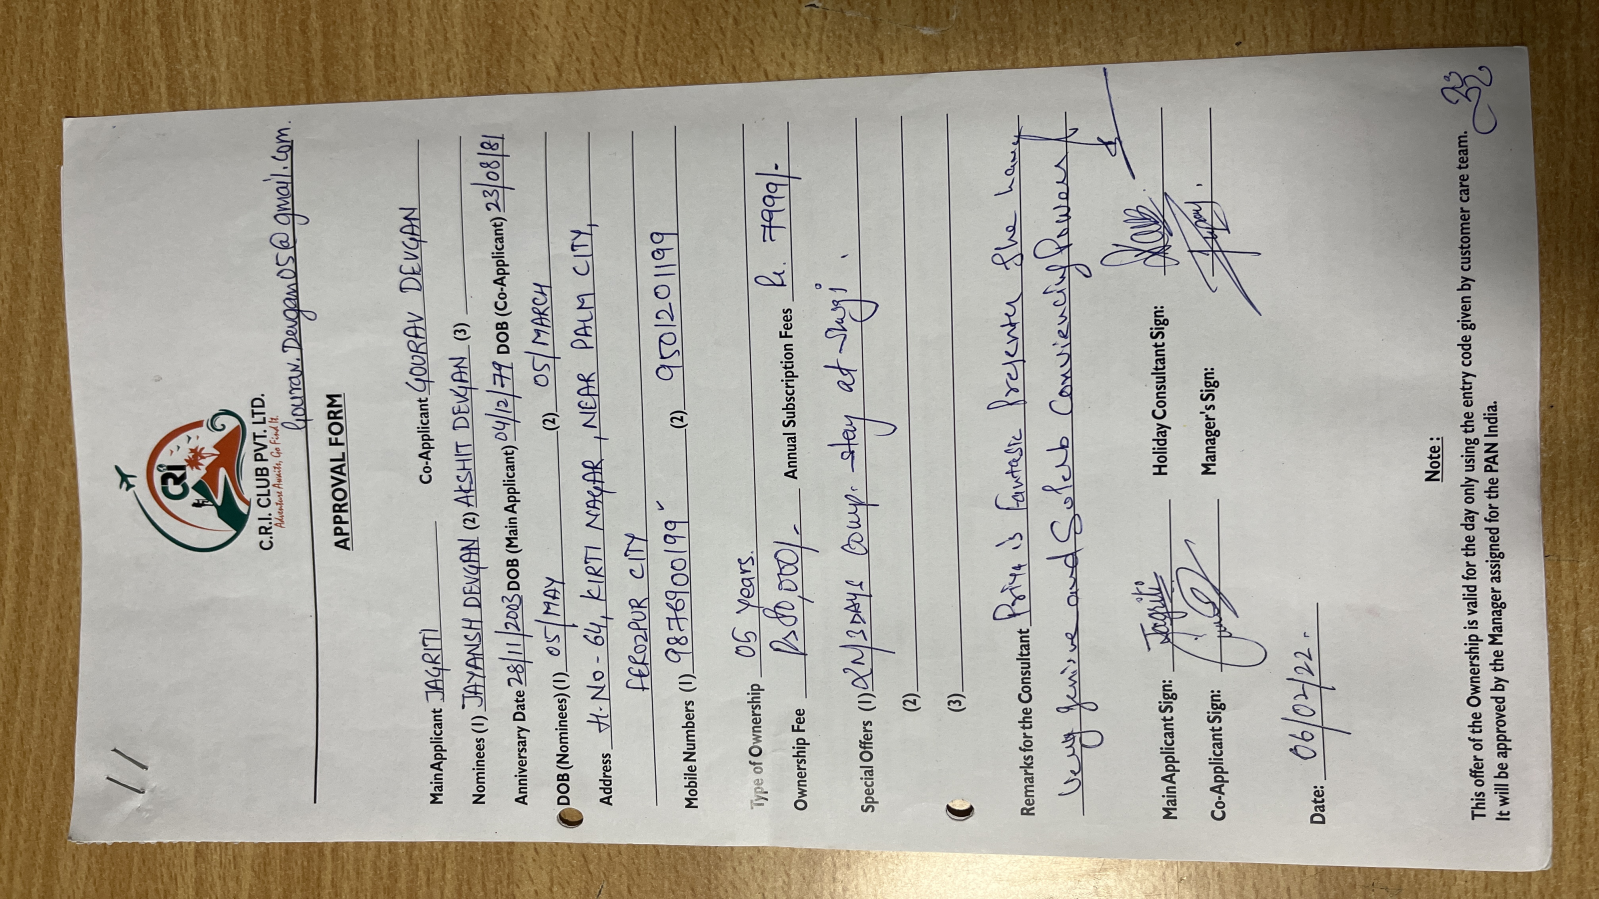 11
CRI
C.R.I. CLUB PVT. LTD.
Adventure Awaits, Go Find It.
Gourav.Devgan05@gmail.com.
APPROVAL FORM
Main Applicant JAGRITI Co-Applicant GOURAV DEVGAN
Nominees (1) JAYANSH DEVGAN (2) AKSHIT DEVGAN (3)
Anniversary Date 28/11/2003 DOB (Main Applicant) 04/12/79 DOB (Co-Applicant) 23/08/81
DOB (Nominees) (1) 05/MAY (2) 05/MARCH
Address H-No-64, KIRTI NAGAR, NEAR PALM CITY,
FEROZPUR CITY
Mobile Numbers (1) 9876900199 (2) 9501201199
Type of Ownership 05 Years.
Ownership Fee Rs 80,000/- Annual Subscription Fees Rs. 7999/-
Special Offers (1) 2N/3DAYS Comp. stay at
(2)
(3)
Remarks for the Consultant Priya is Fantastic Presenter She have
very Geniune and Soleb Conviencing Power
Main Applicant Sign: Jagriti Holiday Consultant Sign:
Co-Applicant Sign: Manager's Sign:
Date: 06/02/22.
Note :
This offer of the Ownership is valid for the day only using the entry code given by customer care team.
It will be approved by the Manager assigned for the PAN India.